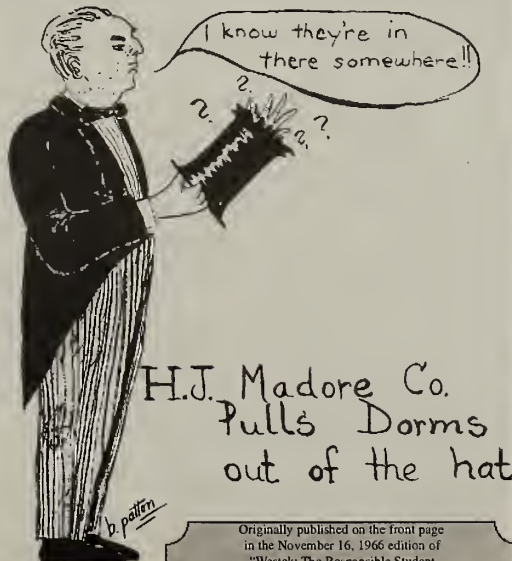 I know they're in
there somewhere!!
?. ?. ?. ?
H.J. Madore Co.
Pulls Dorms
out of the hat
b. patton
Originally published on the front page
in the November 16, 1966 edition of
"Westek: The Responsible Student